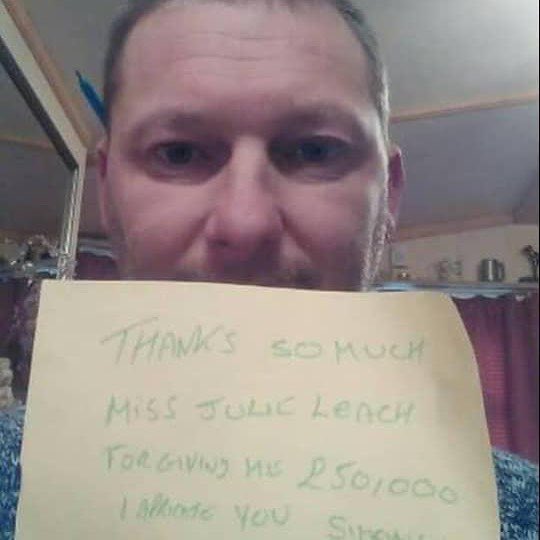 THANKS SO MUCH
MISS JULIE LEACH
FOR GIVING ME £50,000
I APRICATE YOU